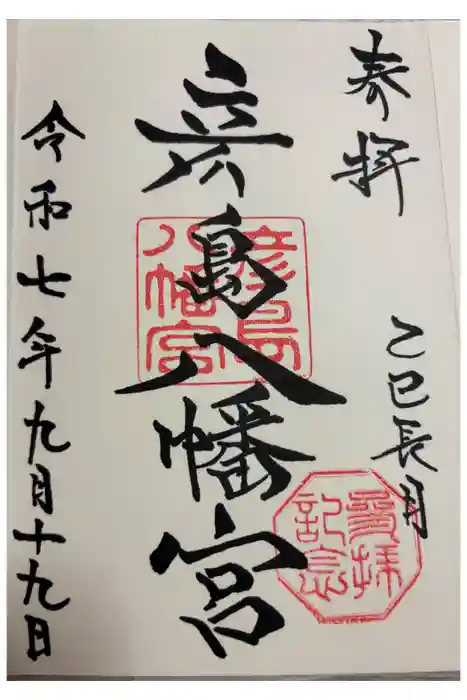 奉拝
乙巳長月
彦島八幡宮
令和七年九月十九日
彦島
八幡宮
參拝
記念